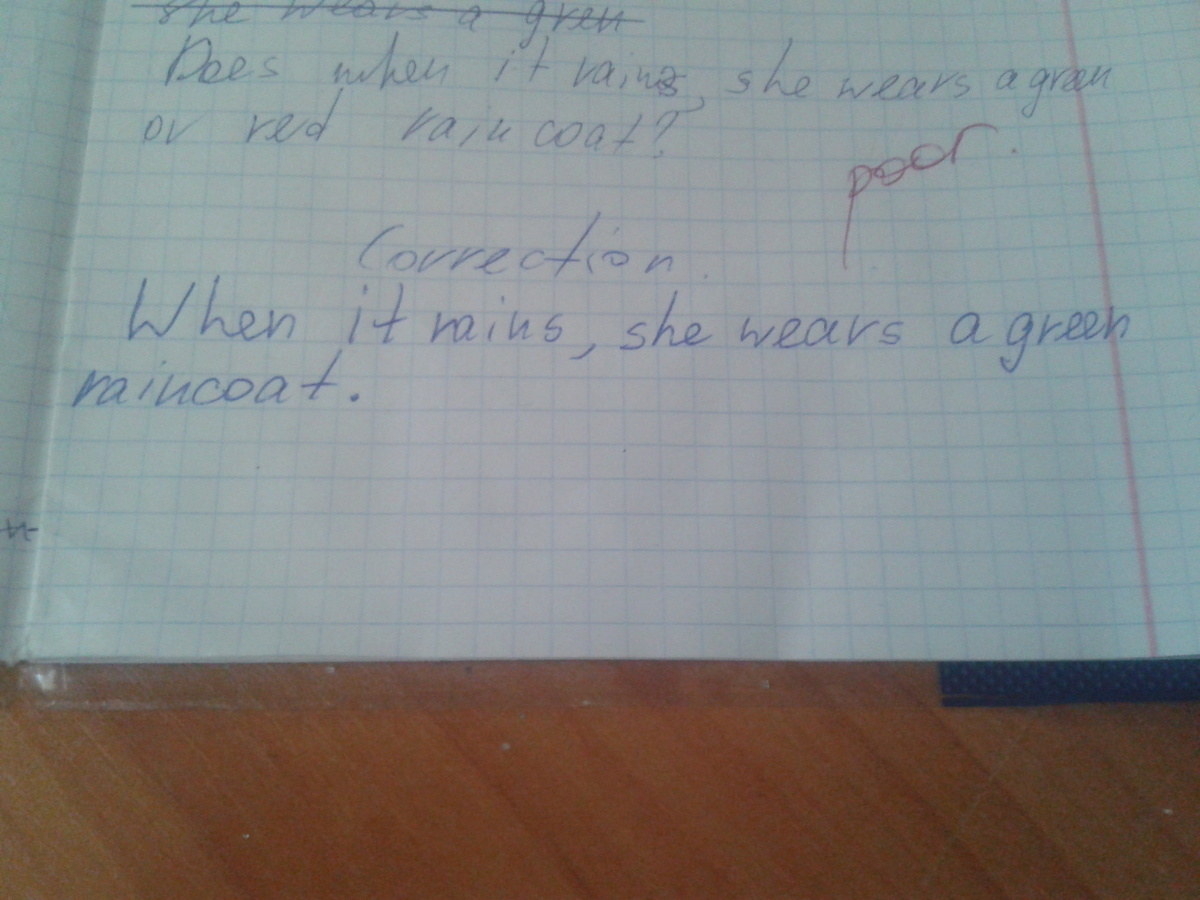 she wears a gren
Does when it rains, she wears a gren
or red rain coat?
poor.
Correction.
When it rains, she wears a green
raincoat.